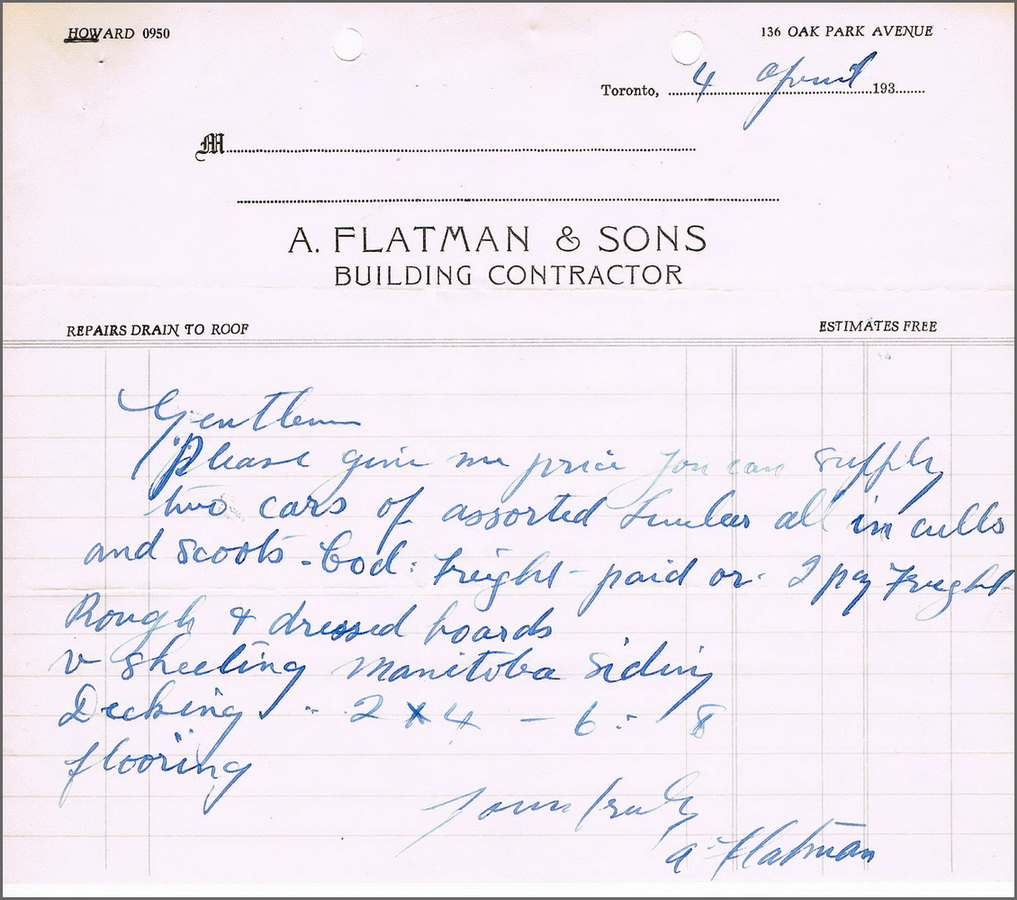 HOWARD 0950
136 OAK PARK AVENUE
Toronto, 4 April 193
M
A. FLATMAN & SONS
BUILDING CONTRACTOR
REPAIRS DRAIN TO ROOF
ESTIMATES FREE
Gentlemen
Please give me price you can supply
two cars of assorted Lumber all in culls
and scoots - Cod. Freight - paid or. I pay Freight -
Rough & dressed boards
v sheeting Manitoba Siding
Decking " 2 x 4 - 6 : 8
flooring
Yours truly
A Flatman